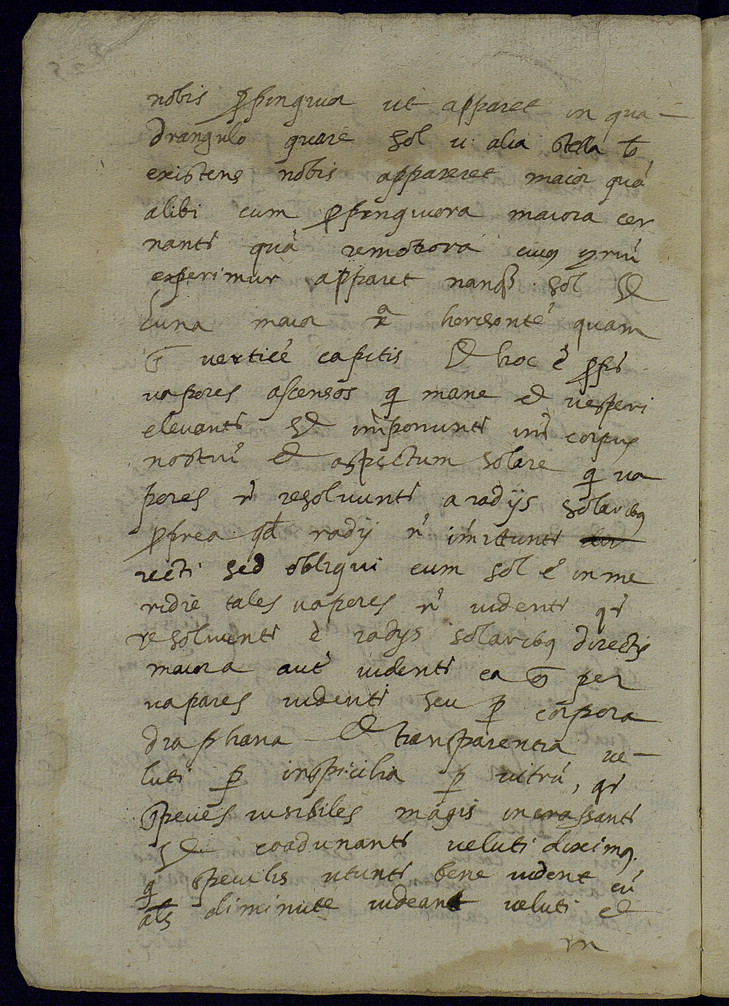 nobis ꝓpinquior ut apparet in qua-
drangulo quare sol u alia stella
existens nobis appareret maior quā
alibi cum ꝓpinquiora maiora cer
nantr quā remotiora cuiꝰ
experimur apparet nanqꝫ sol et
luna maior horisontē quam
verticē capitis et hoc ē
vapores ascensos q mane et vesperi
elevantr et imponuntr corpus
nostrū et aspectum solare q va
pores nō resolvuntr a radijs solaribꝰ
ꝓpterea qd radij nō imituntr
recti sed obliqui cum sol ē in me
ridiē tales vapores nō videntr
resolvuntr ē radijs solaribꝰ directis
maiora autē videntr ea per
vapores videntr seu ꝑ corpora
diaphana et transparentia ve-
luti ꝑ inspicilia ꝑ vitrū,
species visibiles magis incrassantr
et coadunantr veluti diximꝰ
q speculis utuntr bene vident cū
diminute videant veluti et
in